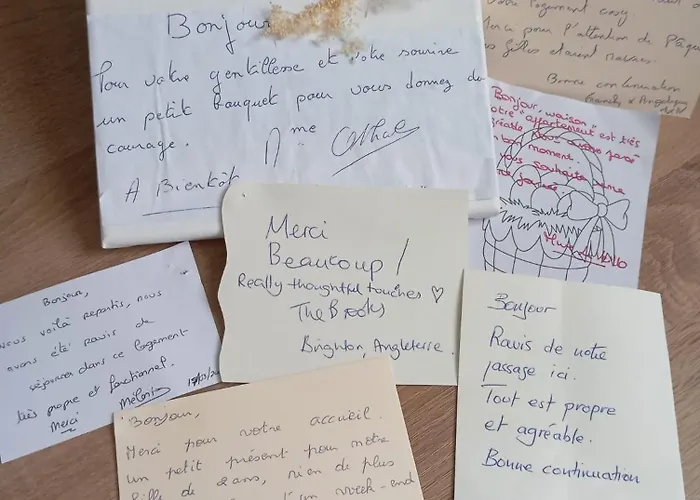 Bonjour
Pour votre gentillesse et votre sourire
un petit bouquet pour vous donnez du
courage.
Mme
A Bientôt
votre logement cosy.
Merci pour l'attention de Pâques
filles étaient ravies.
Bonne continuation
Bonjour,
votre "appartement" est très
agréable
bon moment.
vous souhaite
Merci
Beaucoup!
Really thoughtful touches ♡
The Brooks
Brighton, Angleterre.
Bonjour,
Nous voilà repartis, nous
avons été ravis de
séjourner dans ce logement
très propre et fonctionnel.
Merci
Bonjour
Ravis de notre
passage ici.
Tout est propre
et agréable.
Bonne continuation
Bonjour,
Merci pour votre accueil.
un petit présent pour notre
fille de 2 ans, rien de plus
week-end